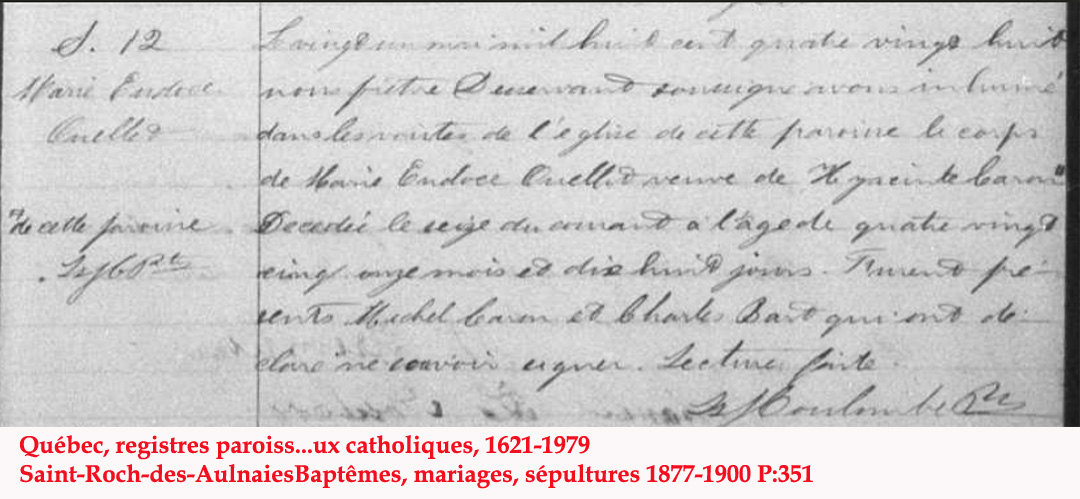 S. 12
Marie Eudoce
Ouellet
"de cette paroisse
Ls J C Ptre
Le vingt un mai mil huit cent quatre vingt huit
nous prêtre Desservant soussigné avons inhumé
dans les voûtes de l'église de cette paroisse le corps
de Marie Eudoce Ouellet veuve de Hyacinte Caron"
Decedée le seize du courant à l'age de quatre vingt
cinq onze mois et dix huit jours. Furent pré-
sents Michel Caron et Charles Bart qui ont dé-
claré ne savoir signer. Lecture faite.
Ls J Coulombe Ptre
Québec, registres paroiss...ux catholiques, 1621-1979
Saint-Roch-des-AulnaiesBaptêmes, mariages, sépultures 1877-1900 P:351